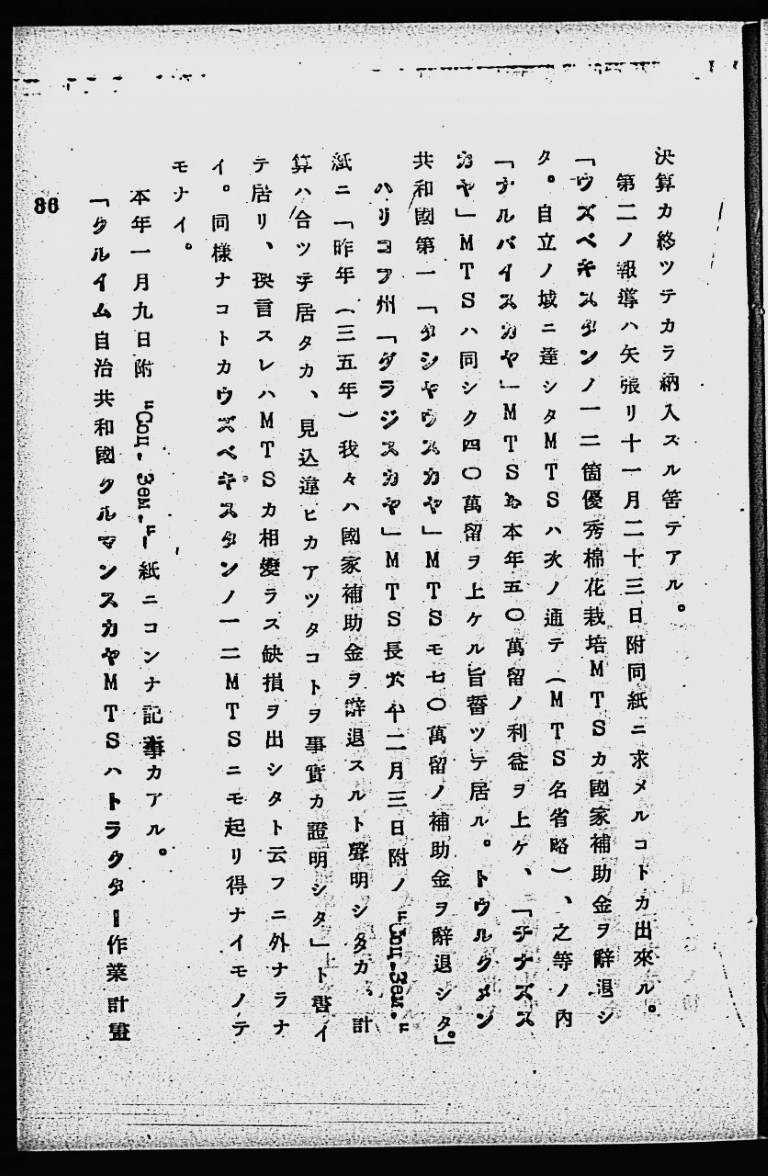 決算カ終ツテカラ納入スル筈テアル。
第二ノ報導ハ矢張リ十一月二十三日附同紙ニ求メルコトカ出來ル。
「ウズベキスタンノ一二箇優秀棉花栽培MTSカ國家補助金ヲ辭退シ
タ。自立ノ域ニ達シタMTSハ次ノ通テ（MTS名省略）、之等ノ内
「ナルバイスカヤ」MTSハ本年五〇萬留ノ利益ヲ上ケ、「チナズス
カヤ」MTSハ同シク四〇萬留ヲ上ケル旨誓ツテ居ル。トウルクメン
共和國第一「タシヤウスカヤ」MTSモ七〇萬留ノ補助金ヲ辭退シタ。」
ハリコフ州「グラジスカヤ」MTS長ハ十二月三日附ノ "Соц.Зем."
紙ニ「昨年（三五年）我々ハ國家補助金ヲ辭退スルト聲明シタカ、計
算ハ合ツテ居タカ、見込違ヒカアツタコトヲ事實カ證明シタ」ト書イ
テ居リ、換言スレハMTSカ相變ラス缺損ヲ出シタト云フニ外ナラナ
イ。同樣ナコトカウズベキスタンノ一二MTSニモ起リ得ナイモノテ
モナイ。
本年一月九日附 "Соц. Зем." 紙ニコンナ記事カアル。
「クルイム自治共和國クルマンスカヤMTSハトラクター作業計畫
86